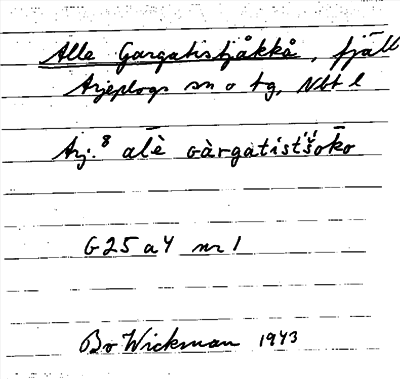 Alle Gargatistjåkkå, fjäll
Arjeplogs sn o tg, Nbt l
Arj.⁸ alḕ gàrgatist'š́ōko
G 25 a 4 nr 1
Bo Wickman 1943